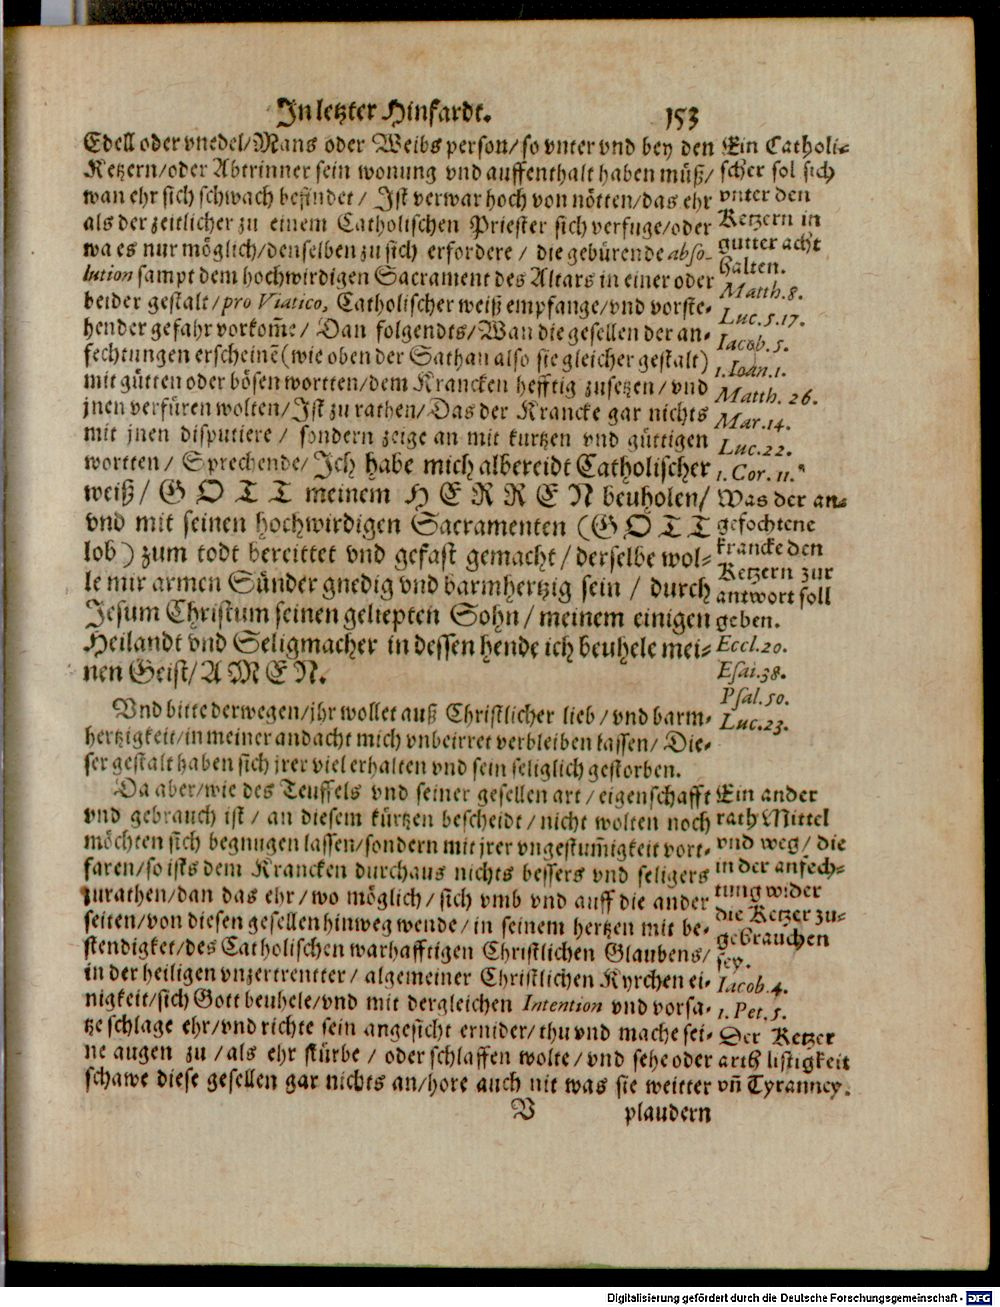 In letzter Hinfardt. 153
Edell oder vnedel/Mans oder Weibs person/so vnter vnd bey den
Ketzern/oder Abtrinner sein wonung vnd auffenthalt haben müß/
wan ehr sich schwach befindet/ Ist verwar hoch von nötten/das ehr
als der zeitlicher zu einem Catholischen Priester sich verfuge/oder
wa es nur möglich/denselben zu sich erfordere / die gebürende abso-
lution sampt dem hochwirdigen Sacrament des Altars in einer oder
beider gestalt/pro Viatico, Catholischer weiß empfange/vnd vorste-
hender gefahr vorkom̃e/ Dan folgendts/Wan die gesellen der an-
fechtungen erscheinẽ(wie oben der Sathan also sie gleicher gestalt)
mit gütten oder bösen wortten/dem Krancken hefftig zusetzen/vnd
jnen verfüren wolten/Ist zu rathen/Das der Krancke gar nichts
mit jnen disputiere / sondern zeige an mit kurtzen vnd güttigen
wortten/ Sprechende/Ich habe mich albereidt Catholischer
weiß/ G O T T meinem H E R R E N beuholen/
vnd mit seinen hochwirdigen Sacramenten (G O T T
lob) zum todt bereittet vnd gefast gemacht/derselbe wol-
le mir armen Sünder gnedig vnd barmhertzig sein / durch
Jesum Christum seinen geliepten Sohn/meinem einigen
Heilandt vnd Seligmacher in dessen hende ich beuhele mei-
nen Geist/A M E N.
Vnd bitte derwegen/jhr wollet auß Christlicher lieb/vnd barm-
hertzigkeit/in meiner andacht mich vnbeirret verbleiben lassen/ Die-
ser gestalt haben sich jrer viel erhalten vnd sein seliglich gestorben.
Da aber/wie des Teuffels vnd seiner gesellen art/eigenschafft
vnd gebrauch ist / an diesem kürtzen bescheidt/nicht wolten noch
möchten sich begnugen lassen/sondern mit jrer vngestum̃igkeit vort-
faren/so ists dem Krancken durchaus nichts bessers vnd seligers
zurathen/dan das ehr/wo möglich/sich vmb vnd auff die ander
seiten/von diesen gesellen hinweg wende/in seinem hertzen mit be-
stendigket/des Catholischen warhafftigen Christlichen Glaubens/
in der heiligen vnzertrentter/ algemeiner Christlichen Kyrchen ei-
nigkeit/sich Gott beuhele/vnd mit dergleichen Intention vnd vorsa-
tze schlage ehr/vnd richte sein angesicht ernider/thu vnd mache sei-
ne augen zu /als ehr stürbe / oder schlaffen wolte/vnd sehe oder
schawe diese gesellen gar nichts an/hore auch nit was sie weitter
V plaudern
Ein Catholi-
scher sol sich
vnter den
Ketzern in
gutter acht
halten.
Matth.8.
Luc.5.17.
Iacob.5.
1.Ioan.1.
Matth. 26.
Mar.14.
Luc.22.
1.Cor.11.
Was der an-
gefochtene
krancke den
Ketzern zur
antwort soll
geben.
Eccl.20.
Esai.38.
Psal.50.
Luc.23.
Ein ander
rath Mittel
vnd weg/ die
in der anfech-
tung wider
die Ketzer zu-
gebrauchen
sey.
Iacob.4.
1.Pet.5.
Der Ketzer
arth listigkeit
vñ Tyranney.
Digitalisierung gefördert durch die Deutsche Forschungsgemeinschaft - DFG